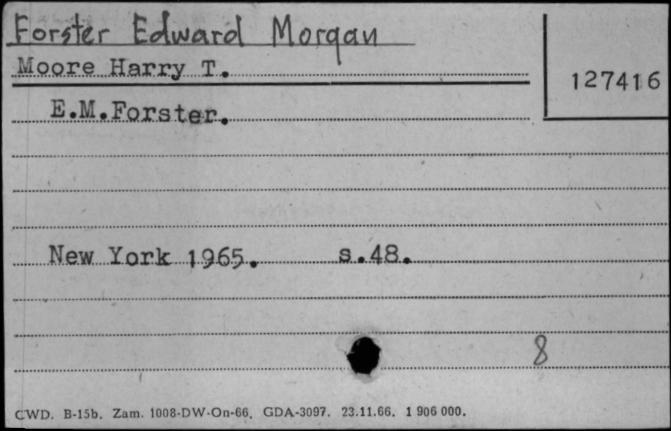 Forster Edward Morgan
Moore Harry T.
127416
E.M.Forster.
New York 1965. s.48.
8
CWD. B-15b. Zam. 1008-DW-On-66. GDA-3097. 23.11.66. 1 906 000.